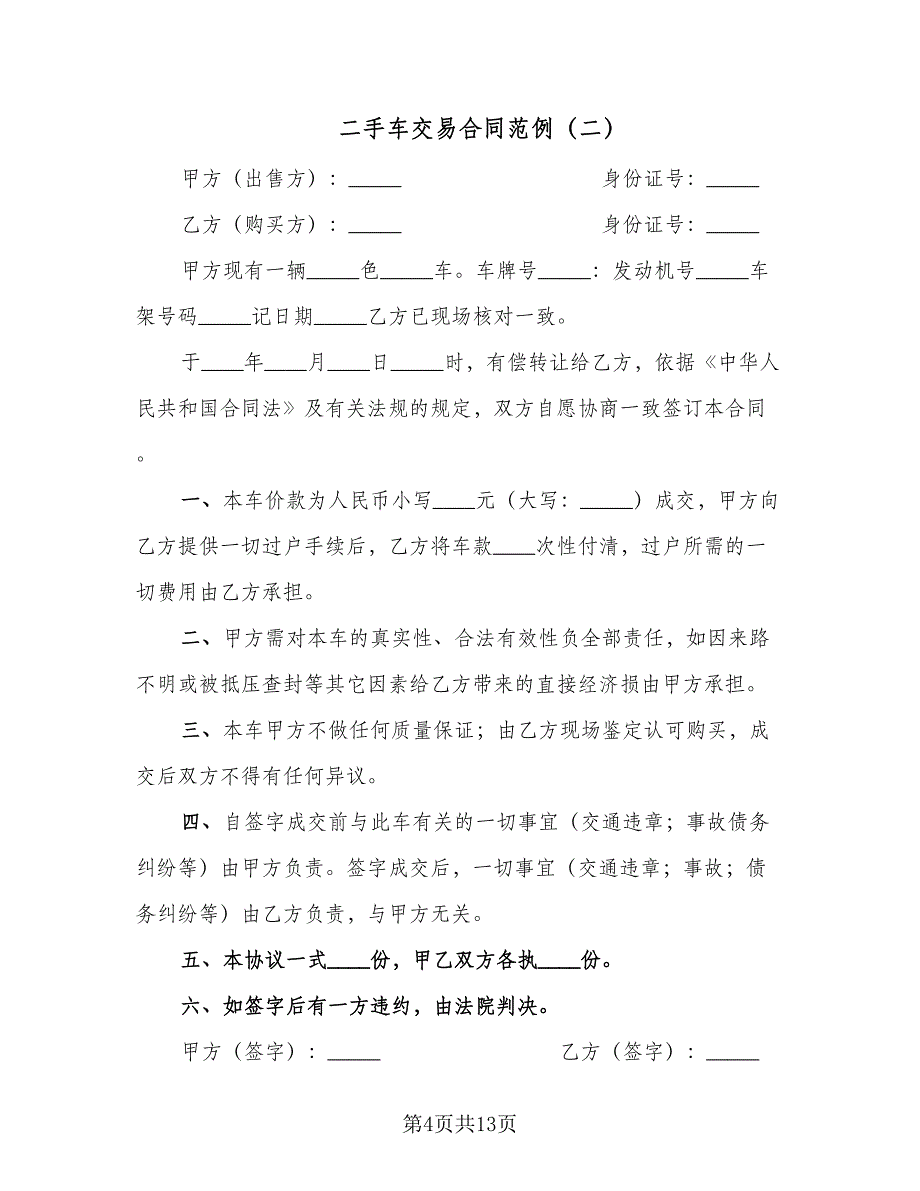 二手车交易合同范例（二）
甲方（出售方）：_____ 身份证号：_____
乙方（购买方）：_____ 身份证号：_____
甲方现有一辆_____色_____车。车牌号_____：发动机号_____车
架号码_____记日期_____乙方已现场核对一致。
于____年____月____日_____时，有偿转让给乙方，依据《中华人
民共和国合同法》及有关法规的规定，双方自愿协商一致签订本合同
。
一、本车价款为人民币小写____元（大写：_____）成交，甲方向
乙方提供一切过户手续后，乙方将车款____次性付清，过户所需的一
切费用由乙方承担。
二、甲方需对本车的真实性、合法有效性负全部责任，如因来路
不明或被抵压查封等其它因素给乙方带来的直接经济损由甲方承担。
三、本车甲方不做任何质量保证；由乙方现场鉴定认可购买，成
交后双方不得有任何异议。
四、自签字成交前与此车有关的一切事宜（交通违章；事故债务
纠纷等）由甲方负责。签字成交后，一切事宜（交通违章；事故；债
务纠纷等）由乙方负责，与甲方无关。
五、本协议一式____份，甲乙双方各执____份。
六、如签字后有一方违约，由法院判决。
甲方（签字）：_____ 乙方（签字）：_____
第4页共13页